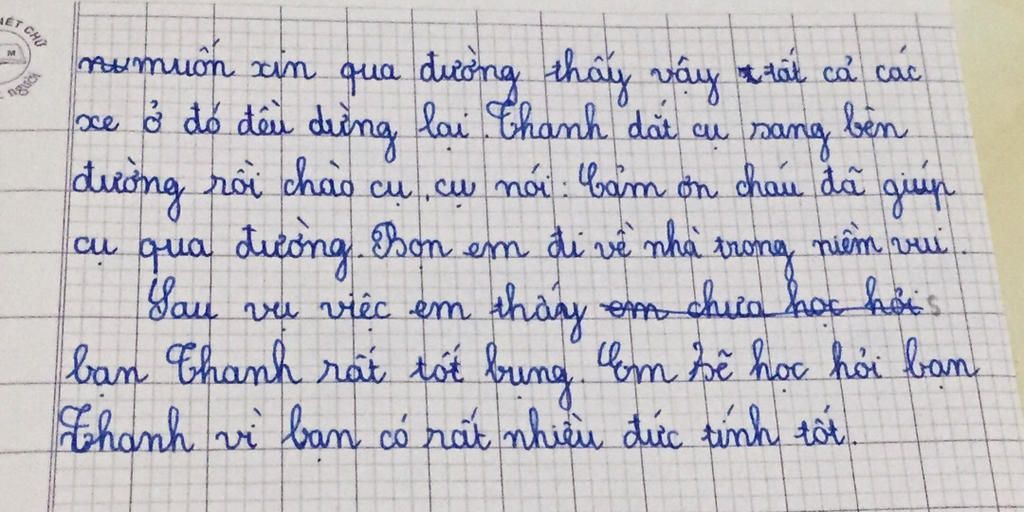 muốn xin qua đường thấy vậy tất cả các
xe ở đó đều dừng lại. Thanh dắt cụ sang bên
đường rồi chào cụ, cụ nói: Cảm ơn cháu đã giúp
cụ qua đường. Bọn em đi về nhà trong niềm vui.
Sau vụ việc em thấy em chưa học hỏi
bạn Thanh rất tốt bụng. Em sẽ học hỏi bạn
Thanh vì bạn có rất nhiều đức tính tốt.